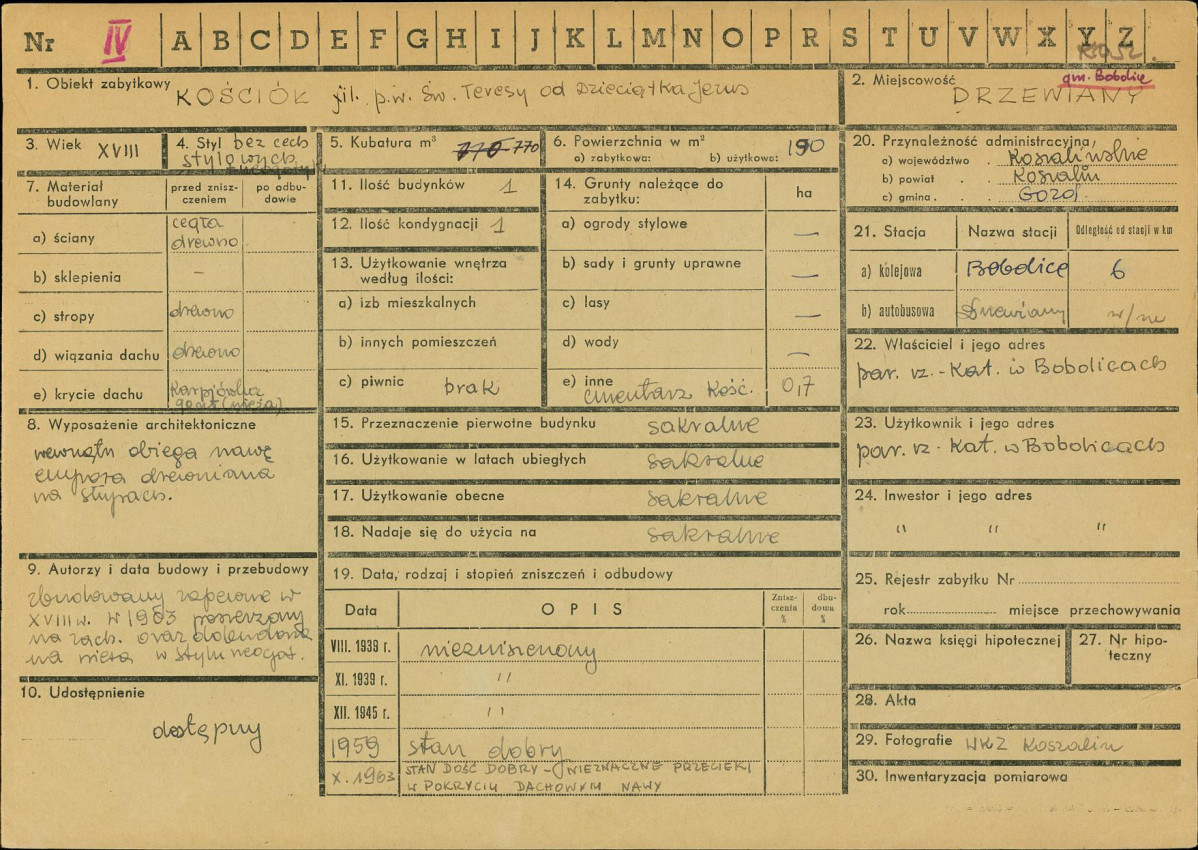 Nr IV A B C D E F G H I J K L M N O P R S T U V W X Y Z
1. Obiekt zabytkowy KOŚCIÓŁ fil. p.w. Św. Teresy od Dzieciątka Jezus
2. Miejscowość gm. Bobolice
DRZEWIANY
3. Wiek XVIII
4. Styl bez cech
stylowych
5. Kubatura m³ 770 770
6. Powierzchnia w m²
a) zabytkowa: b) użytkowe: 190
7. Materiał budowlany
przed zniszczeniem
po odbudowie
a) ściany cegła
drewno
b) sklepienia –
c) stropy drewno
d) wiązania dachu drewno
e) krycie dachu Karpiówka
gont (wieża)
8. Wyposażenie architektoniczne
wewnątrz obiega nawę
empora drewniana
na słupach.
9. Autorzy i data budowy i przebudowy
zbudowany zapewne w
XVIII w. W 1903 poszerzony
na zach. oraz dobudowana
wieża w stylu neogot.
10. Udostępnienie
dostępny
11. Ilość budynków 1
12. Ilość kondygnacji 1
13. Użytkowanie wnętrza
według ilości:
a) izb mieszkalnych
b) innych pomieszczeń
c) piwnic brak
14. Grunty należące do
zabytku:
ha
a) ogrody stylowe —
b) sady i grunty uprawne —
c) lasy —
d) wody —
e) inne
cmentarz Kość. 0,7
15. Przeznaczenie pierwotne budynku sakralne
16. Użytkowanie w latach ubiegłych sakralne
17. Użytkowanie obecne sakralne
18. Nadaje się do użycia na sakralne
19. Data, rodzaj i stopień zniszczeń i odbudowy
Data OPIS Zniszczenia % dbudowa %
VIII. 1939 r. niezniszczony
XI. 1939 r. "
XII. 1945 r. "
1959 stan dobry
X. 1963 STAN DOŚĆ DOBRY – NIEZNACZNE PRZECIEKI
W POKRYCIU DACHOWYM NAWY
20. Przynależność administracyjna
a) województwo Koszalińskie
b) powiat Koszalin
c) gmina
21. Stacja Nazwa stacji Odległość od stacji w km
a) kolejowa Bobolice 6
b) autobusowa Drzewiany w/m
22. Właściciel i jego adres
par. rz. - Kat. w Bobolicach
23. Użytkownik i jego adres
par. rz. Kat. w Bobolicach
24. Inwestor i jego adres
" " "
25. Rejestr zabytku Nr
rok miejsce przechowywania
26. Nazwa księgi hipotecznej
27. Nr hipoteczny
28. Akta
29. Fotografie WKZ Koszalin
30. Inwentaryzacja pomiarowa